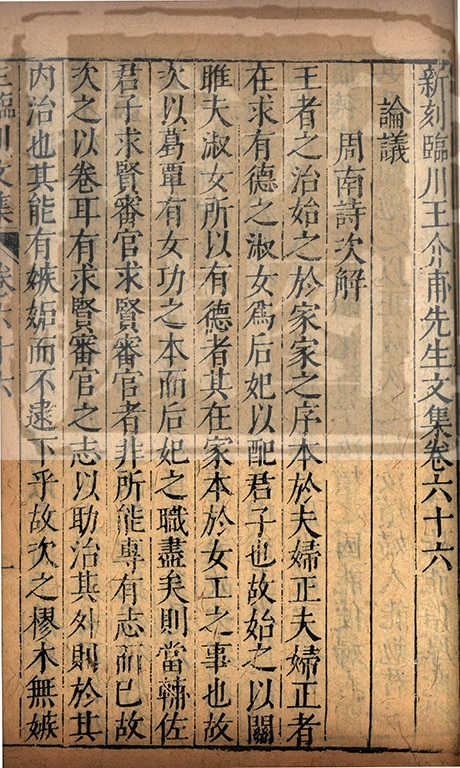 新刻臨川王介甫先生文集卷六十六
論議
周南詩次解
王者之治始之於家家之序本於夫婦正夫婦正者
在求有德之淑女爲后妃以配君子也故始之以關
雎夫淑女所以有德者其在家本於女工之事也故
次以葛覃有女功之本而后妃之職盡矣則當輔佐
君子求賢審官求賢審官者非所能專有志而已故
次之以卷耳有求賢審官之志以助治其外則於其
内治也其能有嫉妬而不逮下乎故次之樛木無嫉
王臨川文集 卷六十六 一